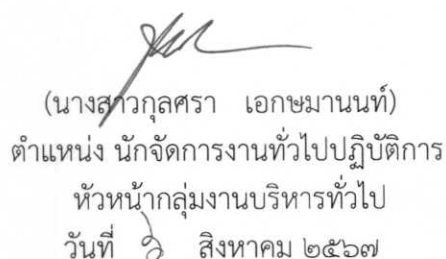 (นางสาวกุลศรา เอกษมานนท์)
ตำแหน่ง นักจัดการงานทั่วไปปฏิบัติการ
หัวหน้ากลุ่มงานบริหารทั่วไป
วันที่ สิงหาคม ๒๕๖๗